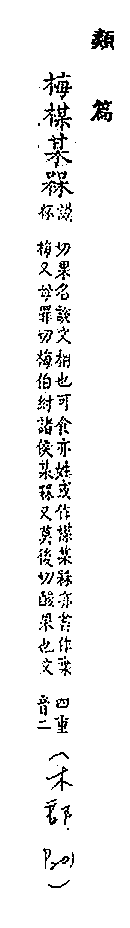 類篇
梅楳某槑
謨
杯
切果名說文枏也可食亦姓或作楳某槑亦書作
梅又母罪切梅伯紂諸侯某槑又莫後切酸果也文
四重
音二
(木部 P201)